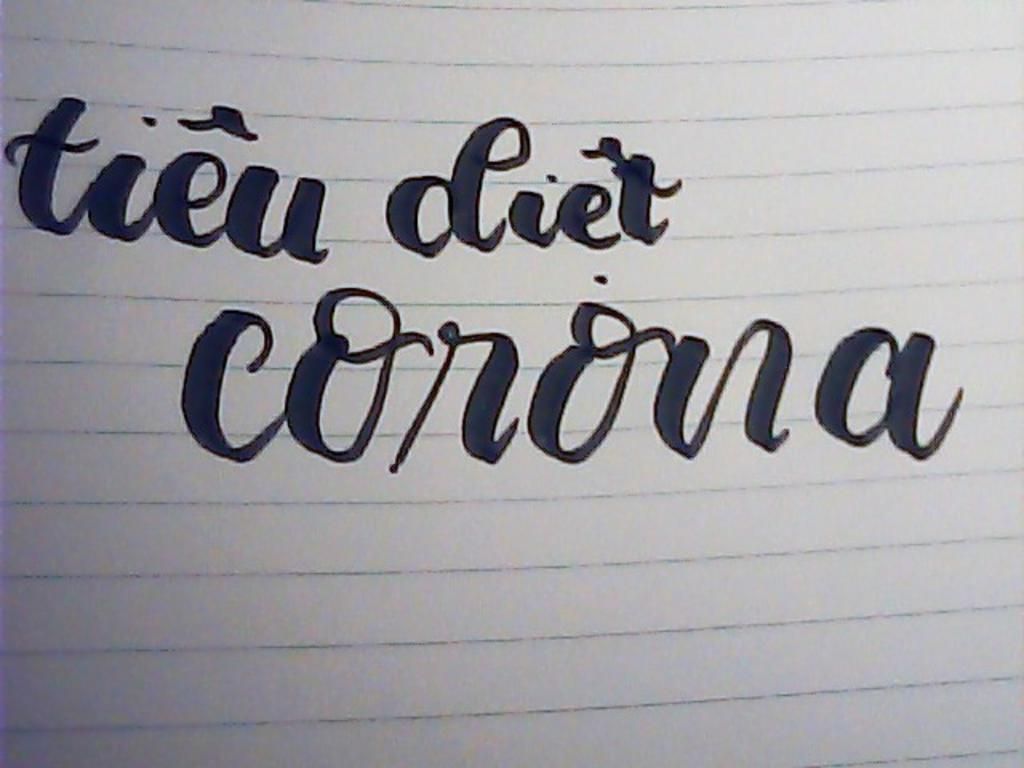 tiêu diệt
corona